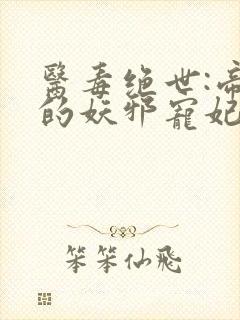 醫毒绝世:帝
的妖邪寵妃
笨笨仙飛